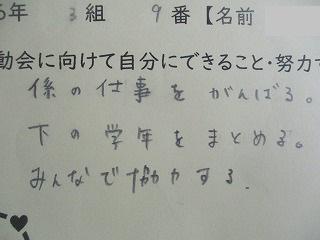 6年 3組 9番【名前
動会に向けて自分にできること・努力す
係の仕事をがんばる。
下の学年をまとめる。
みんなで協力する.